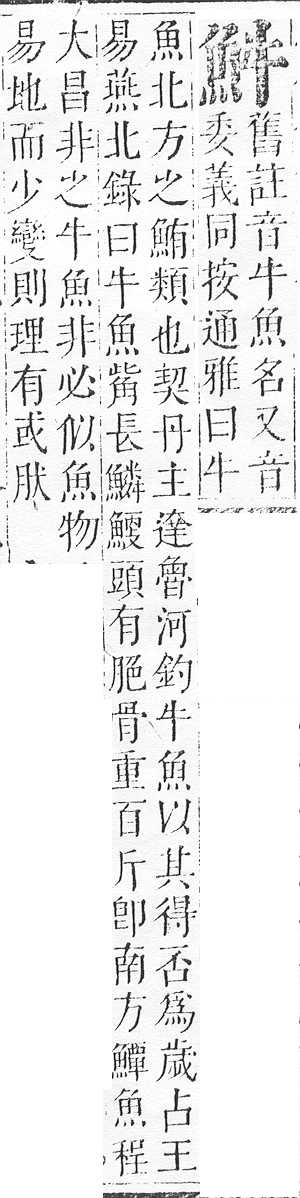 舊註音牛魚名又音
委義同按通雅曰牛
魚北方之鮪類也契丹主達魯河釣牛魚以其得否爲歲占王
易燕北錄曰牛魚觜長鱗鯁頭有脃骨重百斤卽南方鱏魚程
大昌非之牛魚非必似魚物
易地而少變則理有或肰